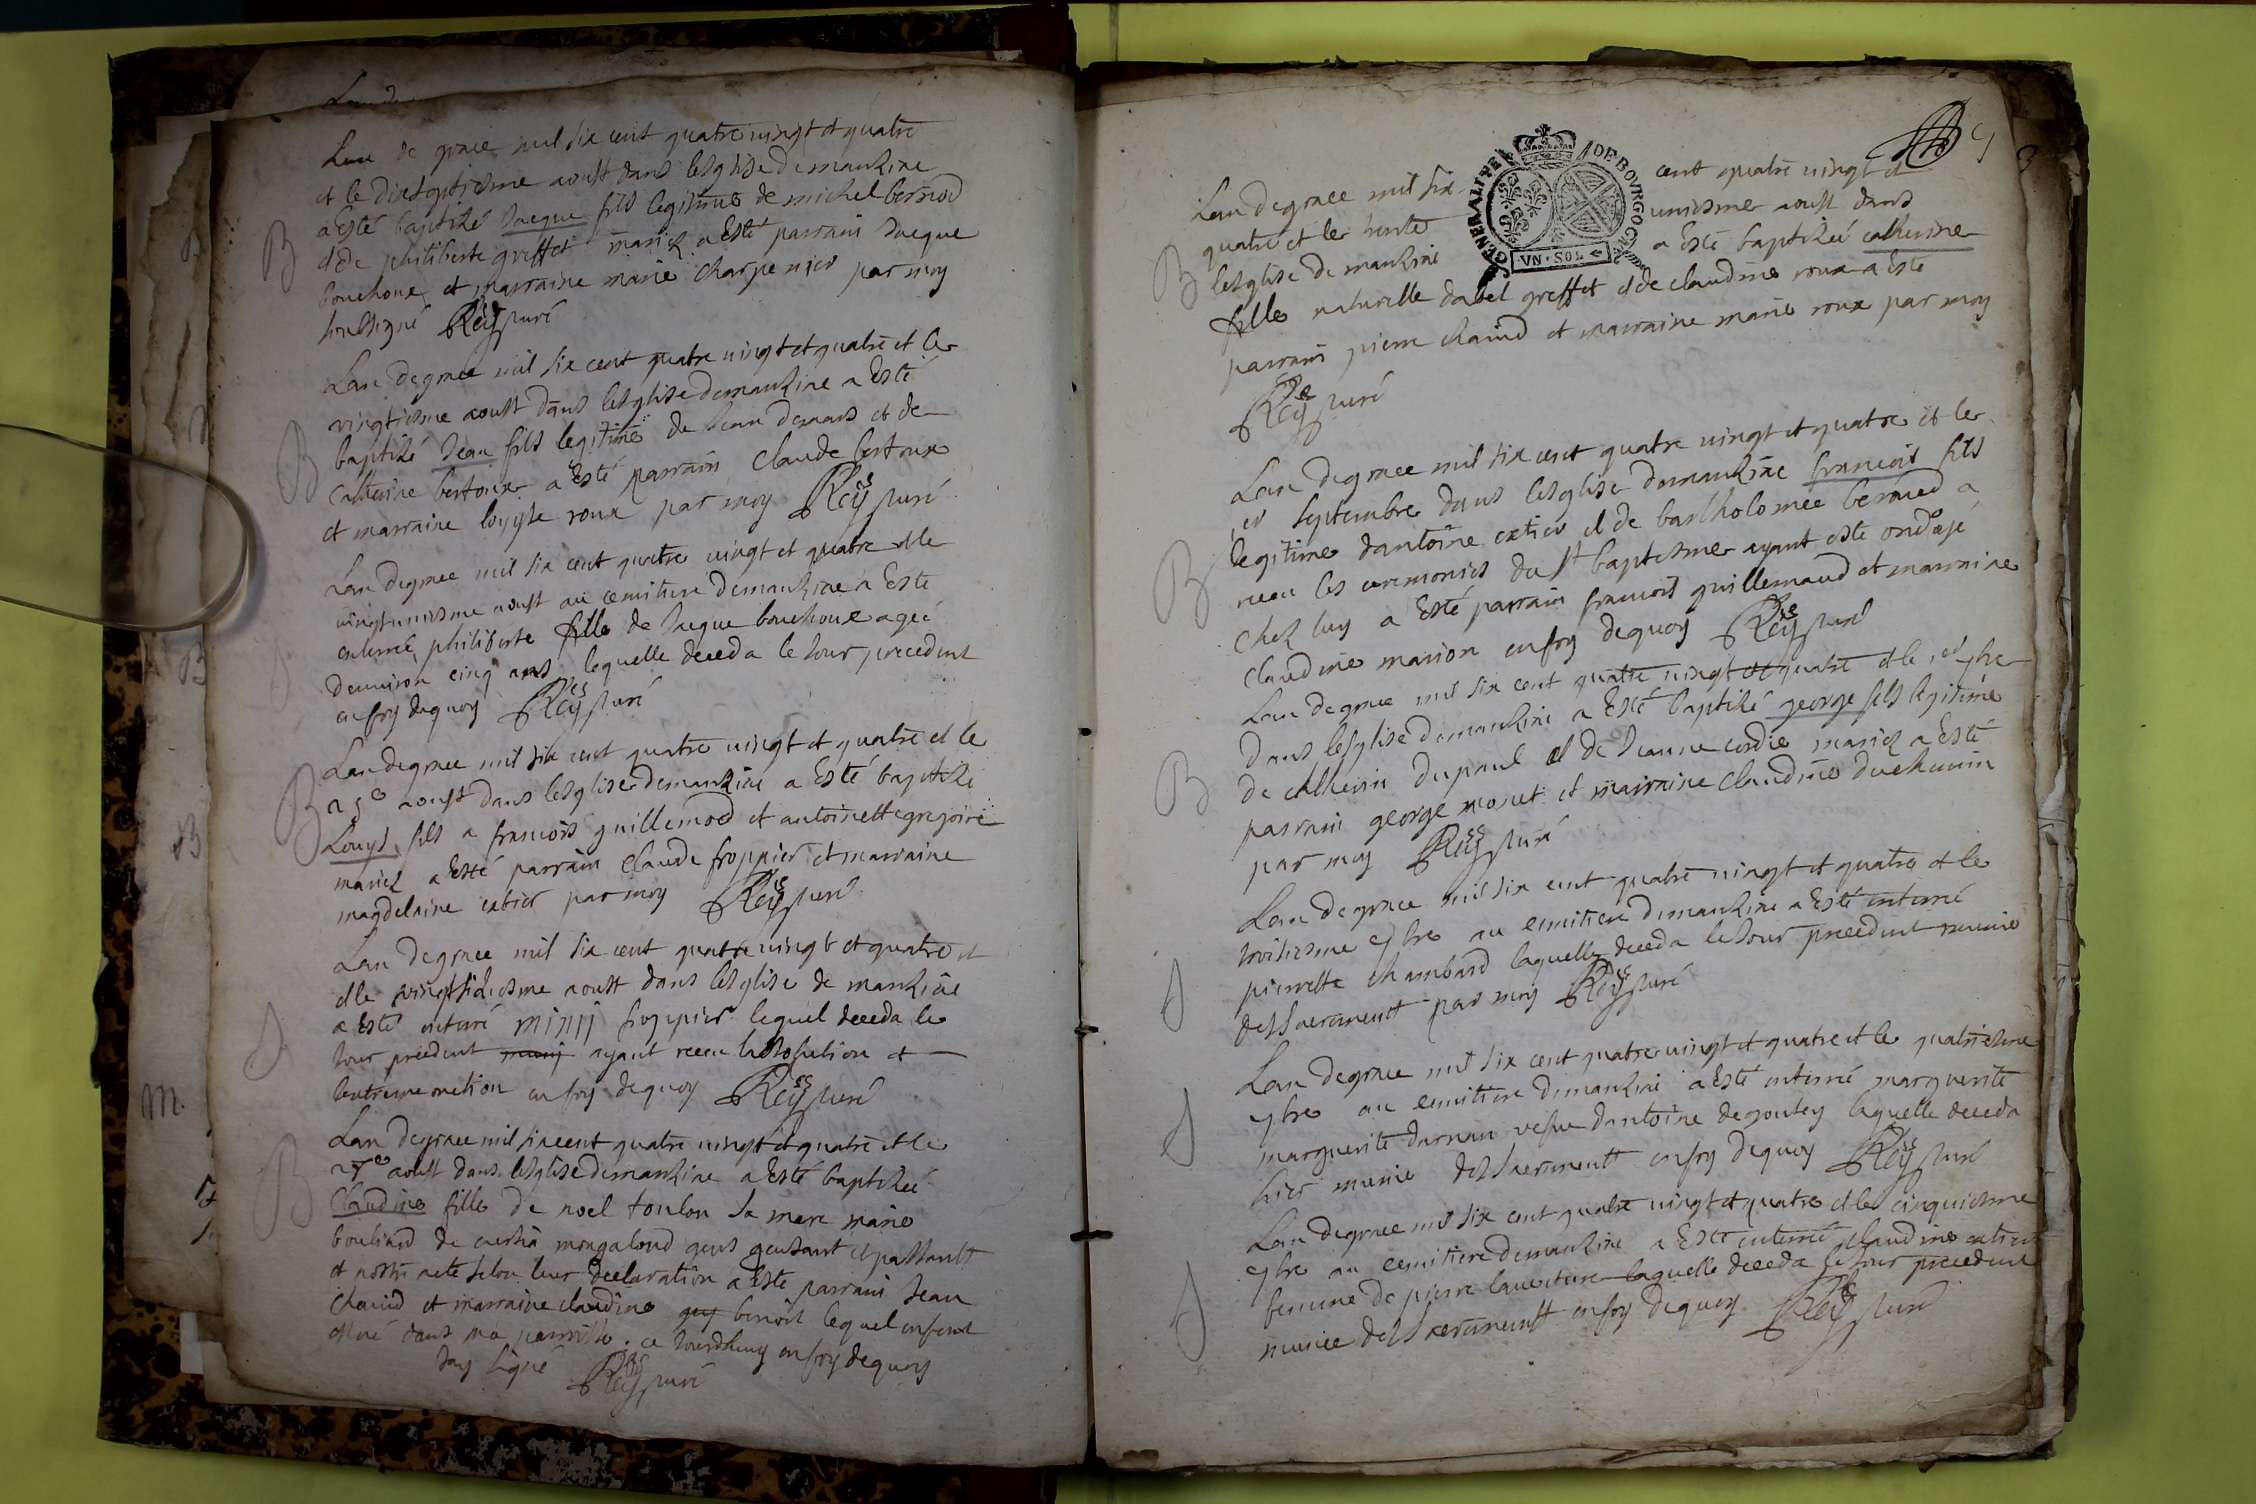 Lan de
Lan de grace mil six cent quatre vingt et quatre
et le dixseptiesme aoust dans lesglise de manziae
a esté baptizé Jacque fils legitime de michel bernod
et de philiberte greffet mariez a esté parrain Jacque
bouchoux et marraine marie charpenier par moy
soubsigné Rey curé
B
Lan de grace mil six cent quatre vingt et quatre et le
vingtiesme aoust dans lesglise de manziae a esté
baptizé Jean fils legitime de Jean demars et de
Catherine bertoux a esté parrain Claude bertoux
et marraine louyse roux par moy Rey curé
B
Lan de grace mil six cent quatre vingt et quatre et le
vingtuniesme aoust au cemitiere de manziae a esté
enterré philiberte fille de Jacque bouchoux ageé
denviron cinq ans lequelle deceda le Jour precedent
en foy dequoy Rey curé
Lan de grace mil six cent quatre vingt et quatre et le
25e aoust dans lesglise de manziae a esté baptizé
Louys fils a francois guillemod et antoinette gregoire
mariez a esté parrain Claude froppier et marraine
magdelaine catier par moy Rey curé
B
Lan de grace mil six cent quatre vingt et quatre et
et le vingtsixiesme aoust dans lesglise de manziae
a esté enterré froppier lequel deceda le
Jour precedent muny ayant receu labsolution et
lextreme onction en foy dequoy Rey curé
Lan de grace mil six cent quatre vingt et quatre et le
27e aoust dans lesglise de manziae a esté baptizeé
Claudine fille de noel toulon sa mere marie
bouliard de mongalond gens et passants
et selon leur declaration a esté parrain Jean
chanid et marraine claudine benoit lequel enfant
est né dans ma parroisse ce Jourdhuy en foy dequoy
Jay signé Rey curé
B
GENERALITE DE BOVRGOGNE
VN·SOL
Lan de grace mil six cent quatre vingt et
quatre et le trente uniesme aoust dans
lesglise de manziae a esté baptizeé catherine
fille naturelle dabel greffet et de claudine roux a esté
parrain pierre chanid et marraine marie roux par moy
Rey curé
B
Lan de grace mil six cent quatre vingt et quatre et le
1er septembre dans lesglise de manziae francois fils
legitime dantoine catier et de bartholomee bernied a
receu les ceremonies du st baptesme ayant esté ondoyé
chez luy a esté parrain francois guillemaud et marraine
claudine marion en foy dequoy Rey curé
B
Lan de grace mil six cent quatre vingt et quatre et le 1er 7bre
dans lesglise de manziae a esté baptizé george fils legitime
de catherin dupaul et de Jeanne cordie mariez a esté
parrain george monet et marraine claudine duchemin
par moy Rey curé
B
Lan de grace mil six cent quatre vingt et quatre et le
troisiesme 7bre au cemitiere de manziae a esté enterré
pierrette chambard laquelle deceda le Jour precedent munie
des sacrements par moy Rey curé
Lan de grace mil six cent quatre vingt et quatre et le quatriesme
7bre au cemitiere de manziae a esté enterré marguerite
marguerite darnan vefve dantoine degoutey laquelle deceda
hier munie des sacrements en foy dequoy Rey curé
Lan de grace mil six cent quatre vingt et quatre et le cinquiesme
7bre au cemitiere de manziae a esté enterré claudine catier
femme de pierre laverture laquelle deceda le Jour precedent
munie des sacrements en foy dequoy Rey curé